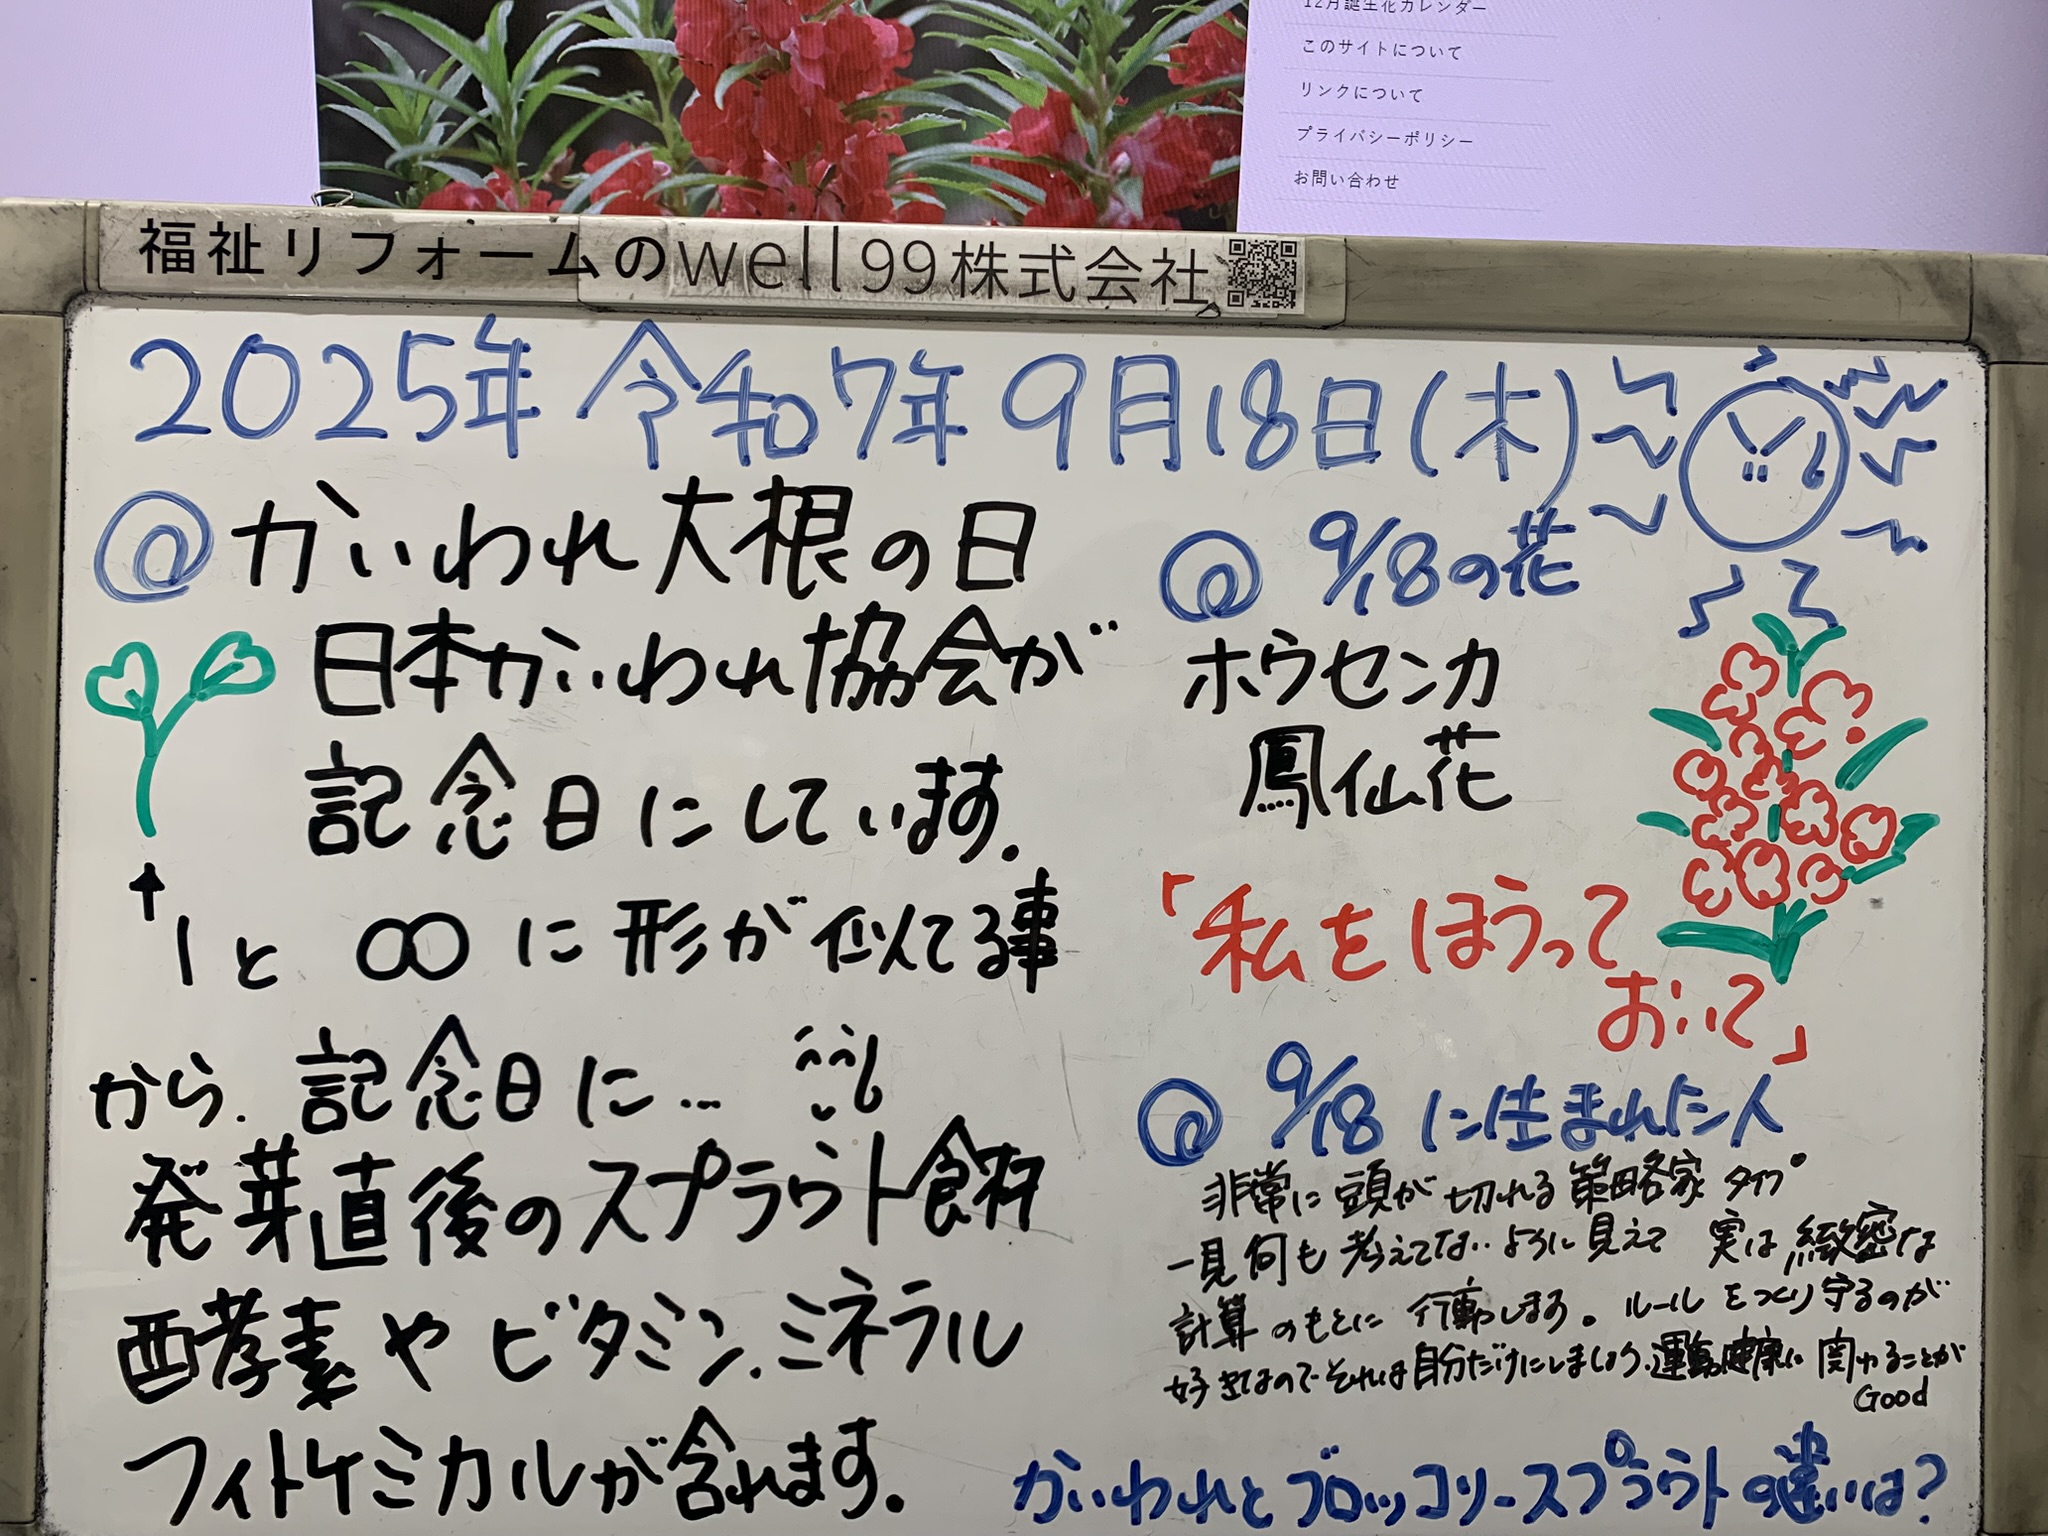 12月誕生花カレンダー
このサイトについて
リンクについて
プライバシーポリシー
お問い合わせ
福祉リフォームのwell99株式会社
2025年 令和7年 9月18日(木)
@かいわれ大根の日
日本かいわれ協会が
記念日にしています.
1と ∞に形が似てる事
から. 記念日に...
発芽直後のスプラウト食材
酵素やビタミン.ミネラル
フィトケミカルが含れます.
@ 9/18の花
ホウセンカ
鳳仙花
「私をほうって
おいて」
@ 9/18に生まれた人
非常に頭が切れる策略家タイプ
一見何も考えてないように見えて 実は緻密な
計算のもとに行動します。ルールをつくり守るのが
好きなのでそれは自分だけにしましょう.運動健康に関わることが
Good
かいわれとブロッコリースプラウトの違いは?